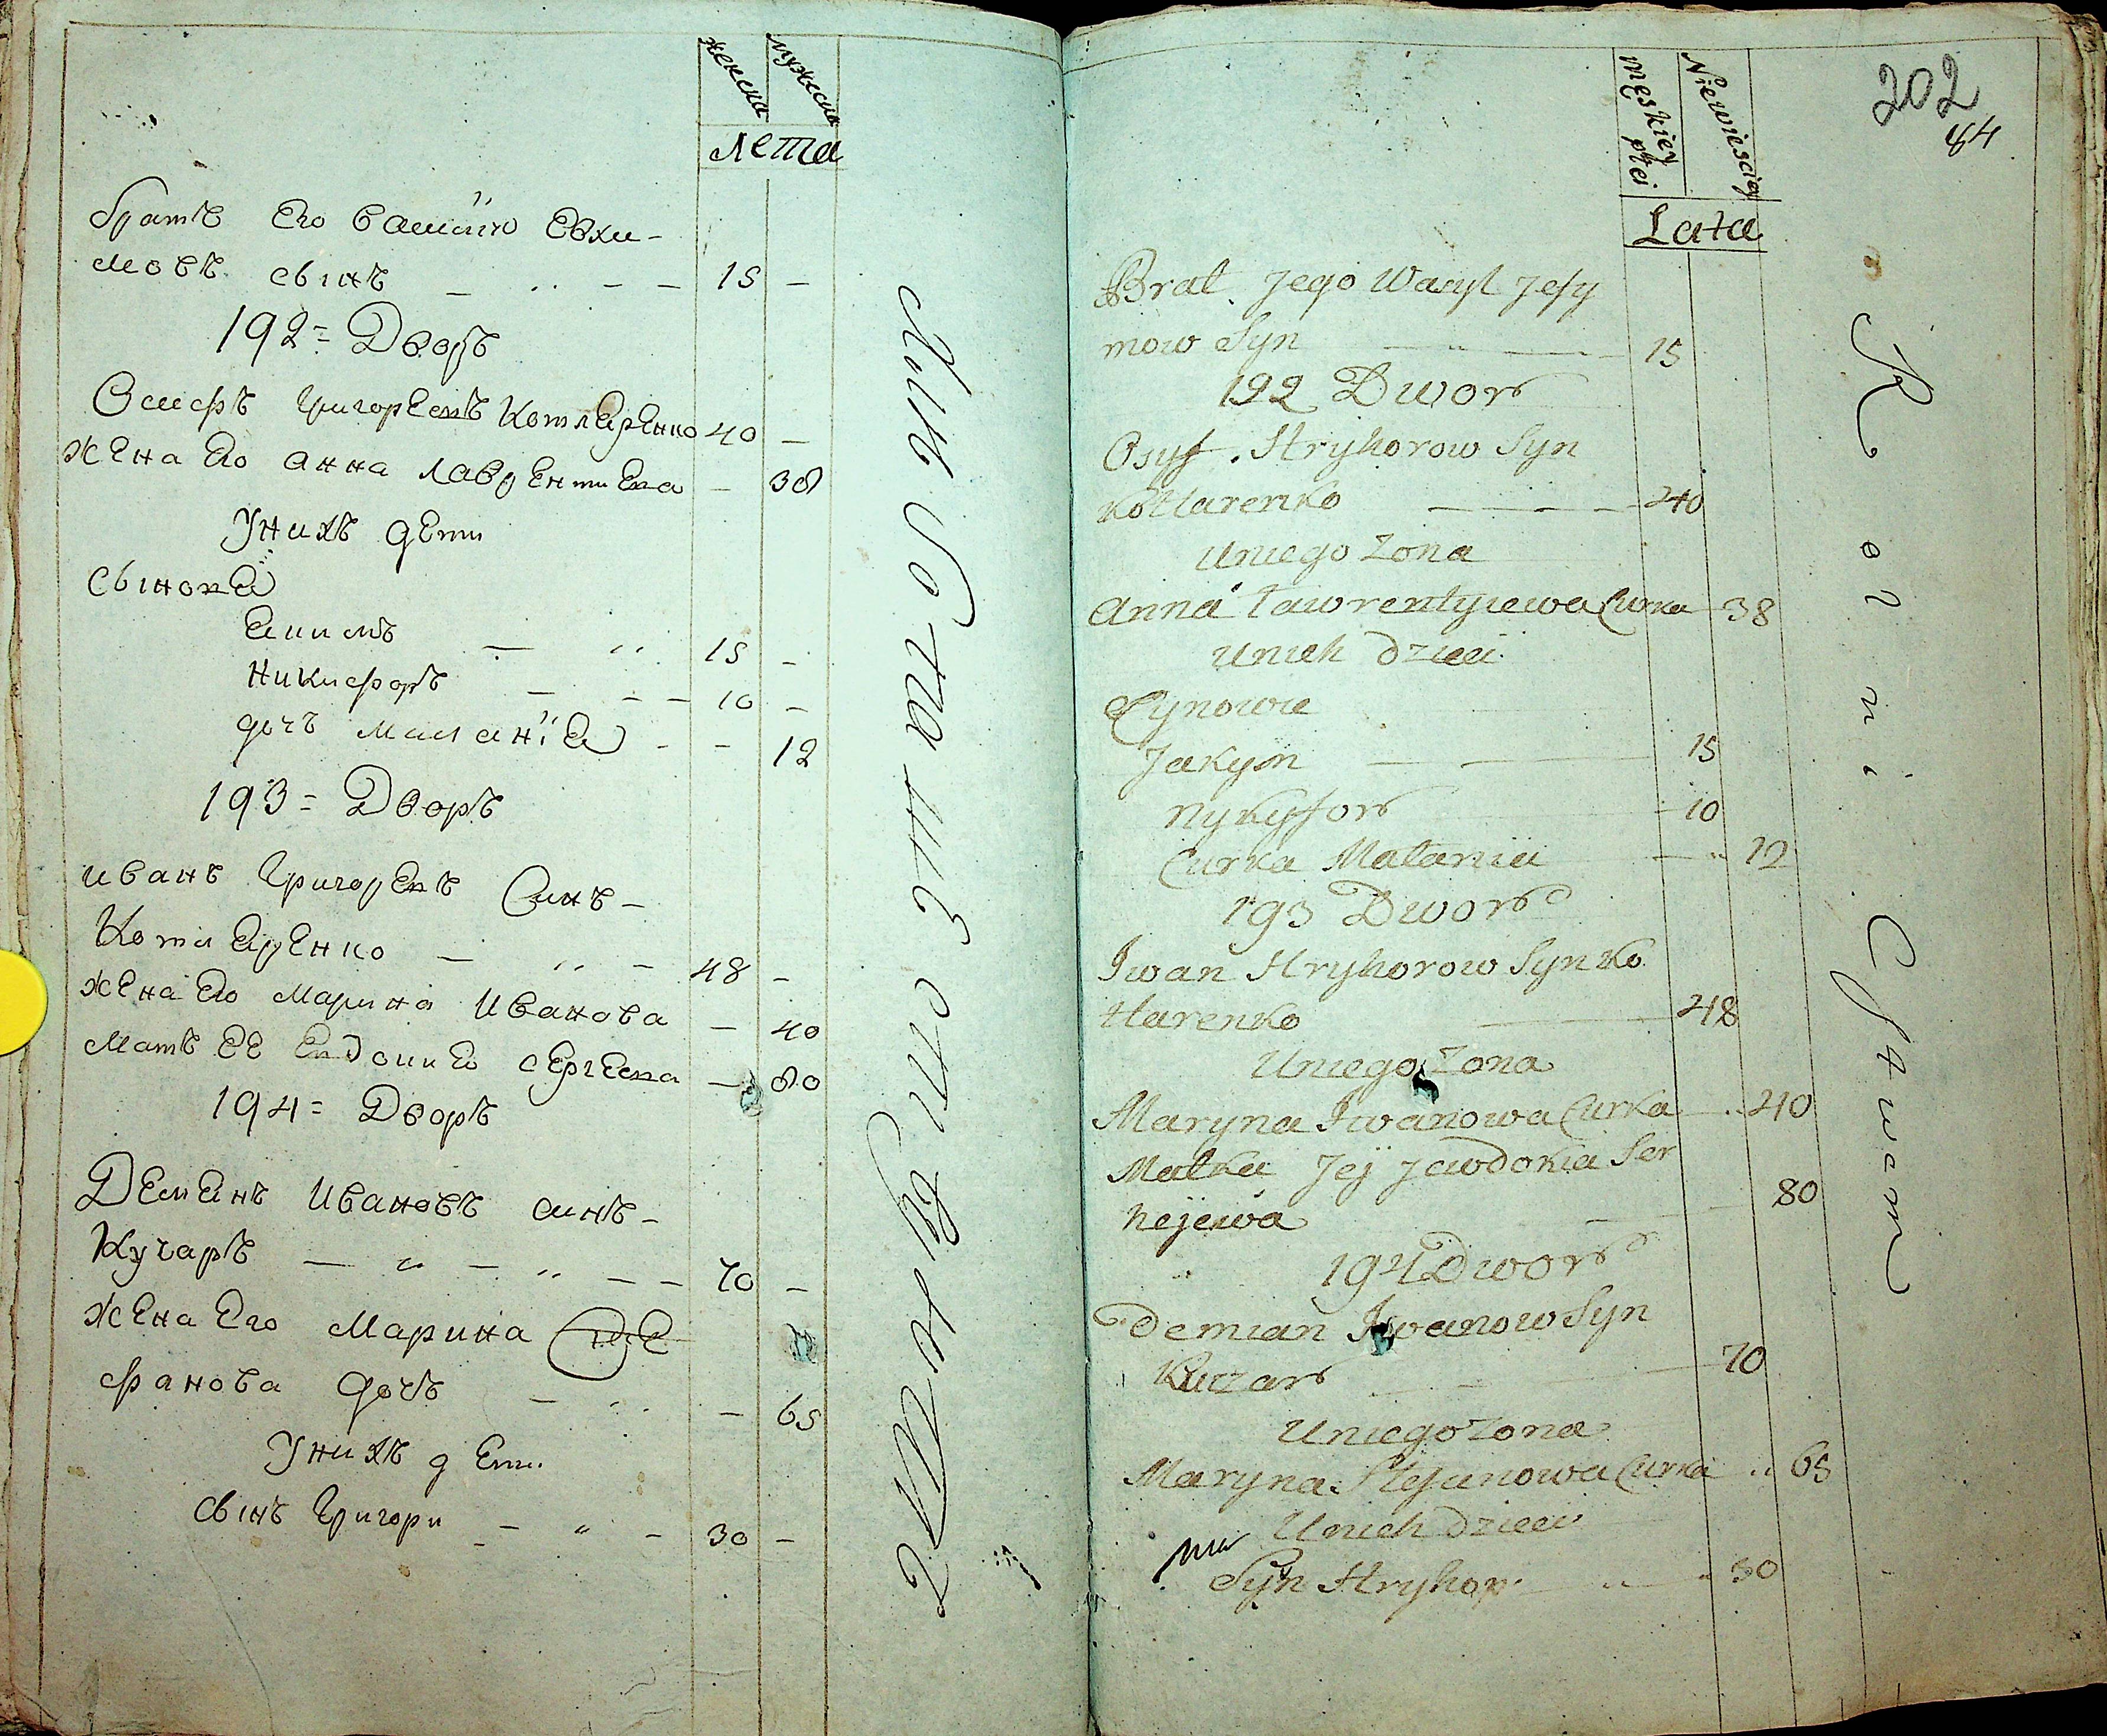 женска мужеска
лета
братъ Его василю Евхи-
мовъ сынъ 15 -
192 = Дворъ
Осифъ григоревъ Котляренко 40 -
жена Его анна лаврентиева - 38
Унихъ дети
сыновя
Якимъ 15 -
Никифоръ 10 -
дочъ Миланія - 12
193 = Дворъ
иванъ григоревъ Синъ -
Котляренко 48 -
жена Его Марина Иванова - 40
Матъ Ее Евдокия сергеева - 80
194 = Дворъ
Демянъ Ивановъ синъ -
Кучаръ 70 -
жена Его Марина Сте
фанова дочъ - 65
Унихъ дети
сынъ григори 30 -
202
84
męskiey płei Niewiesciey
Lata
Brat Jego Wasyl Jefy
mow Syn 15
192 Dwor
Osyf Hryhorow Syn
Kotlarenko 40
Uniego Zona
Anna Lawrentyiewa Curka 38
Unich dzieci
Synowie
Jakym 15
Nykyfor 10
Curka Malania 12
193 Dwor
Iwan Hryhorow Syn Ko
tlarenko 48
Uniego Zona
Maryna Iwanowa Curka 40
Matka Jej Jewdokia Ser
hejewa 80
194 Dwor
Demian Iwanow Syn
Kuczar 70
Uniego Zona
Maryna Stefanowa Curka 65
Unich dzieci
Syn Hryhor 30